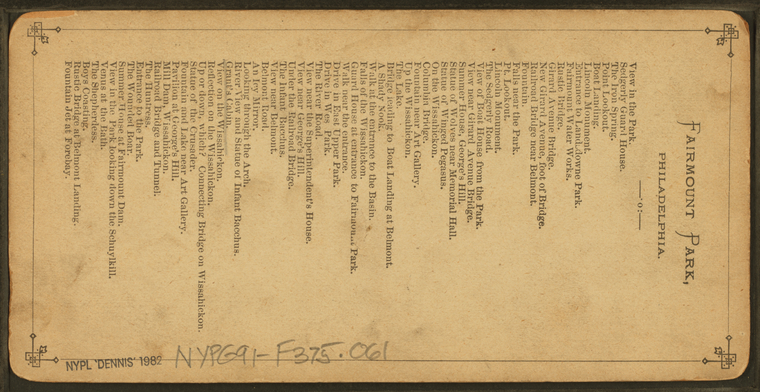 FAIRMOUNT PARK,
PHILADELPHIA.
—:o:—
View in the Park.
Sedgely Guard House.
The Iron Spring.
Point
Boat Landing.
Lincoln Monument.
Entrance to Lansdowne Park.
Fairmount Water Works.
Rustic Bridge.
Girard Avenue Bridge.
New Girard Avenue, foot of Bridge.
Railroad Bridge near Belmont.
Fountain.
Falls near the Park.
Pt. Lookout.
Lincoln Monument.
The Sedgely Road.
View of Boat House from the Park.
View near Girard Avenue Bridge.
Summer House, George's Hill.
Statue of Wolves near Memorial Hall.
Statue of Winged Pegasus.
On the Wissahickon.
Columbia Bridge.
Fountain near Art Gallery.
Up the Wissahickon.
The Lake.
Bridge leading to Boat Landing at Belmont.
A Shady Nook.
Walk at the entrance to the Basin.
Falls of the Wissahickon.
Guard House at entrance to Fairmount Park.
Walk near the entrance.
Drive in East or Upper Park.
Drive in West Park.
The River Road.
View near the Superintendent's House.
View near George's Hill.
Under the Railroad Bridge.
The Infant Bacchus.
View near Belmont.
Belmont Hotel.
An Icy Mirror.
Looking through the Arch.
River View and Statue of Infant Bacchus.
Grant's Cabin.
View on the Wissahickon.
Reflection on the Wissahickon.
Up or down, which? Connecting Bridge on Wissahickon.
Statue of the Crusader.
Fountain near Art Gallery.
Pavilion at George's Hill.
Mill Dam, Wissahickon.
Railroad Bridge and Tunnel.
The Huntress.
Entrance to the Park.
The Wounded Boar.
Summer House at Fairmount Dam.
View in the Park looking down the Schuylkill.
Venus at the Bath.
The Shepherdess.
Boys Coasting.
Rustic Bridge at Belmont Landing.
Fountain Jet at Forebay.
NYPL 'DENNIS' 1982
NYPG91-F375.061